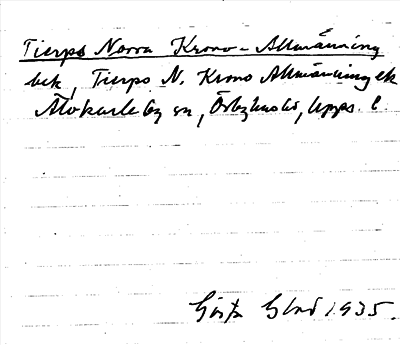 Tierps Norra Krono-Allmänning
bek, Tierps N. Krono Allmänning ek
Älvkarleby sn, Örbyhus hd, Upps. l.
Gösta Glad 1935.